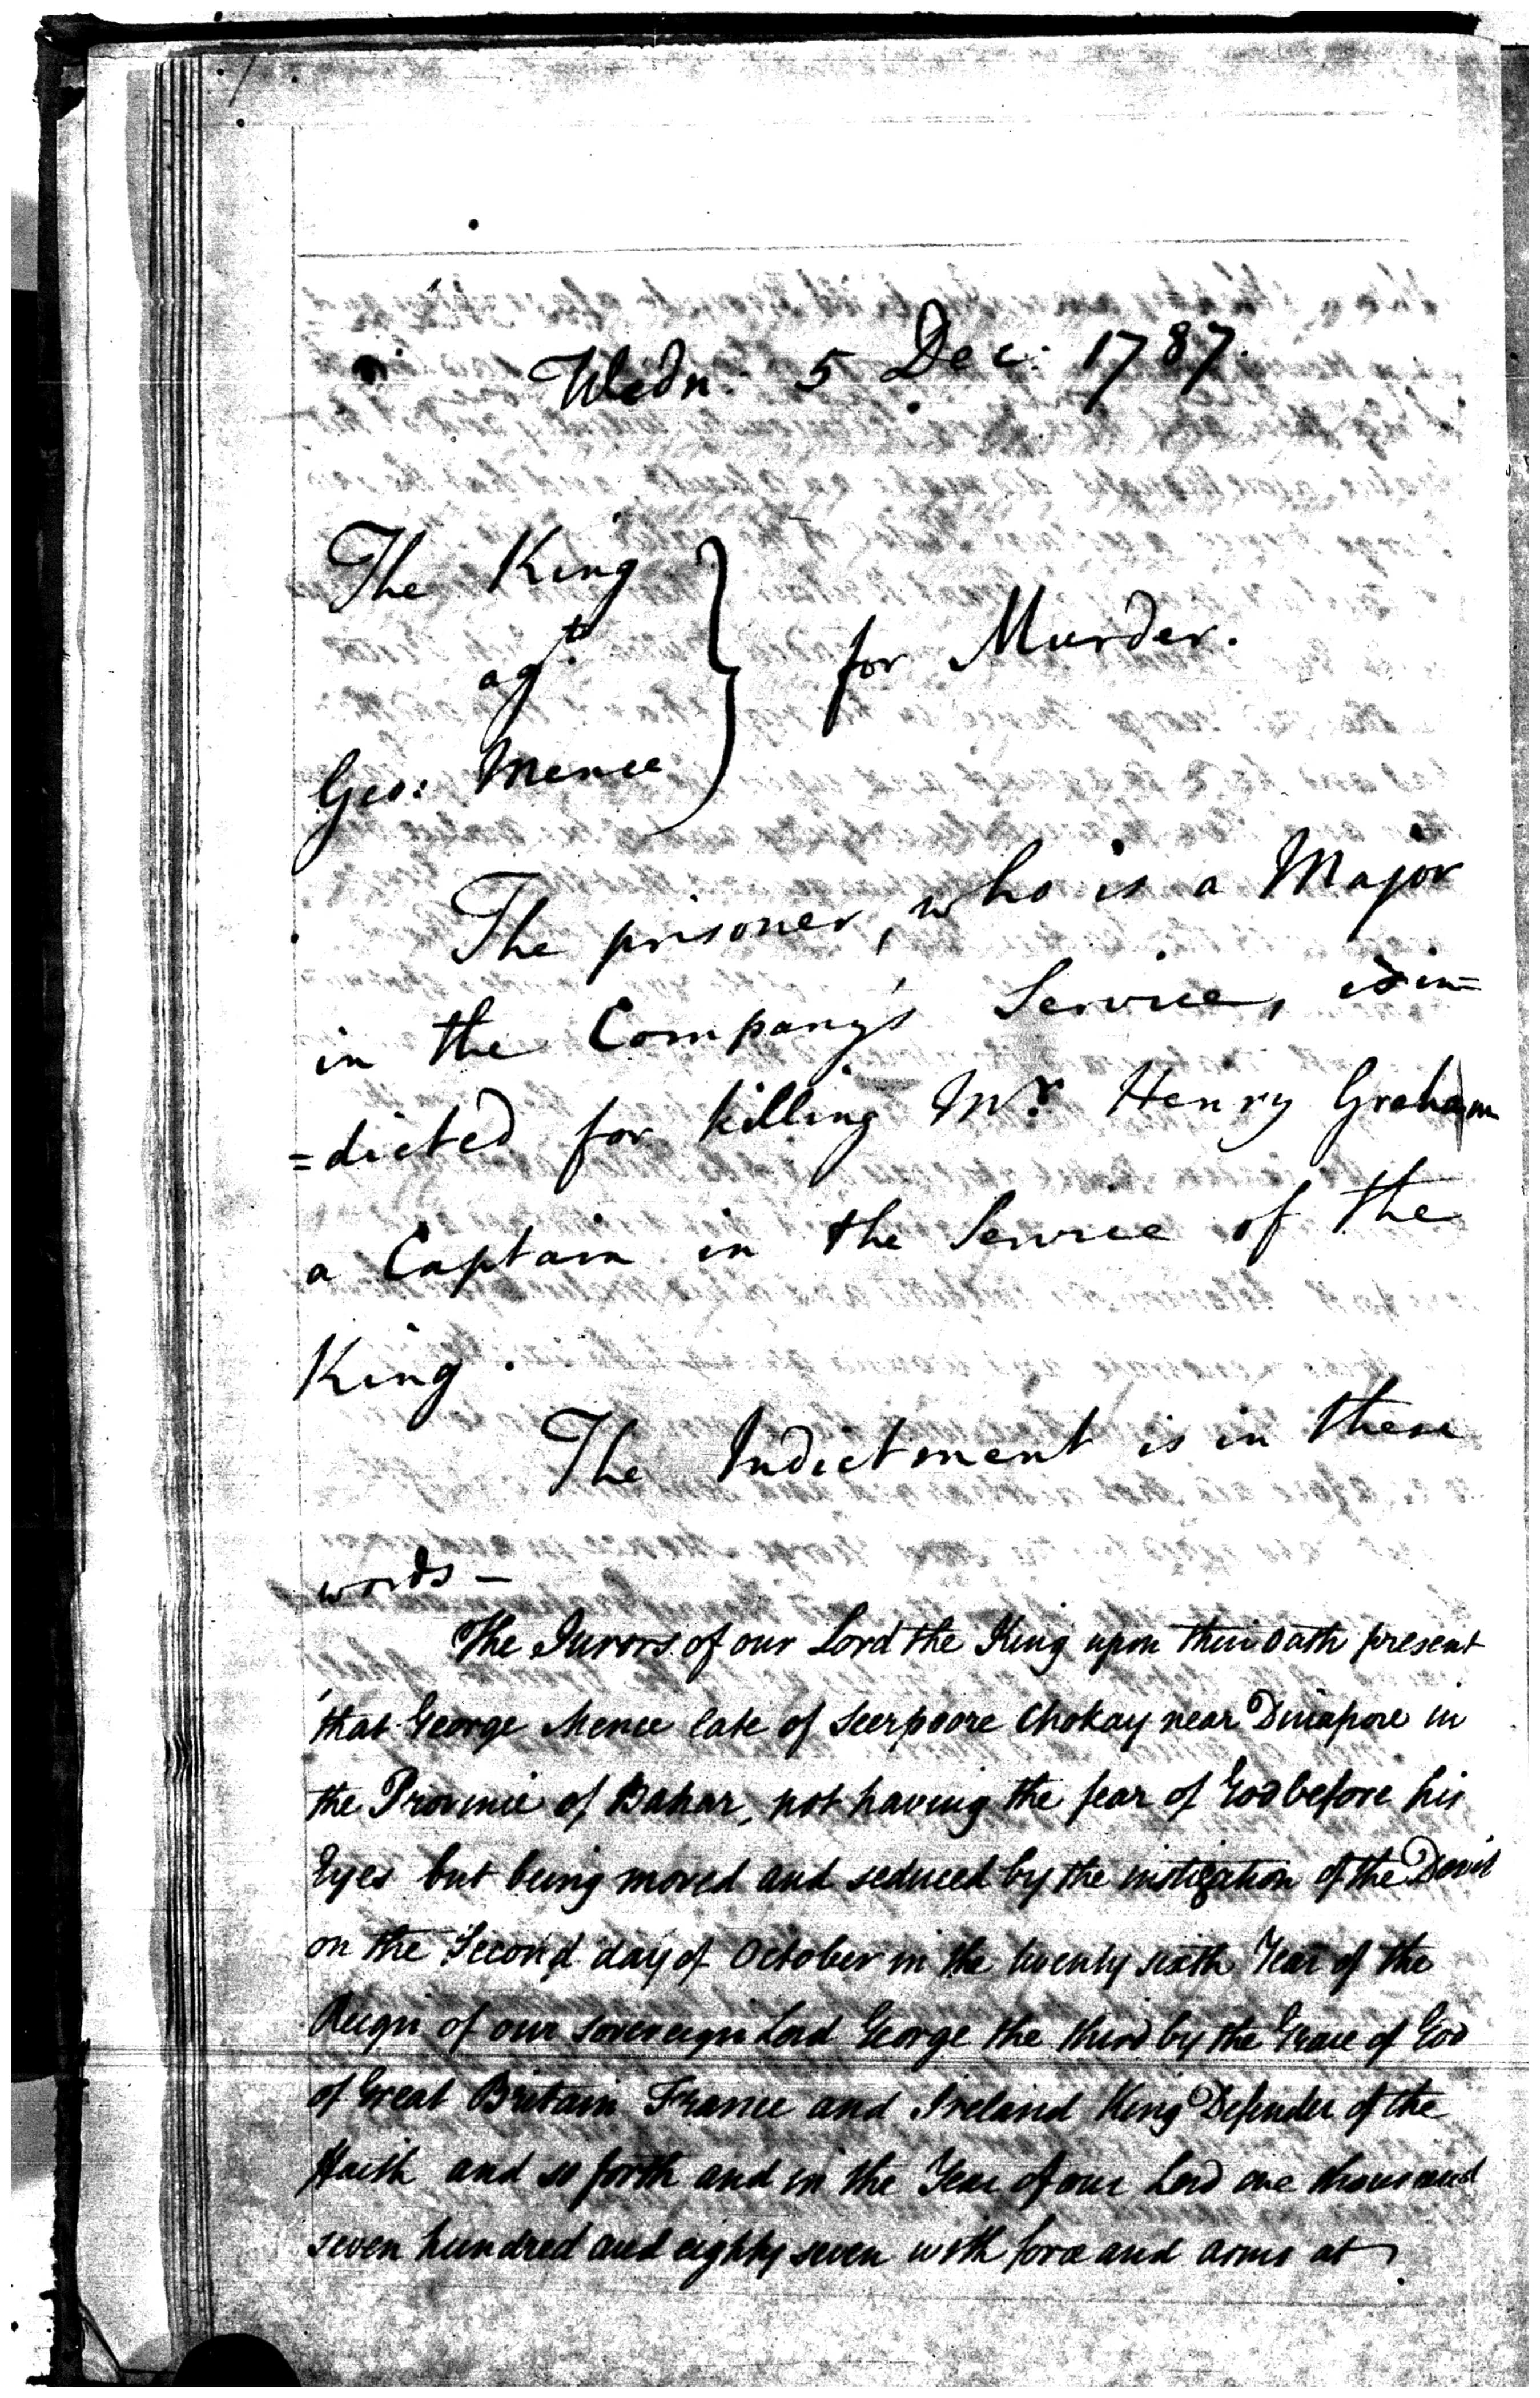 Wedn. 5 Dec: 1787.
The King
agt
Geo: Mence
} for Murder.
The prisoner, who is a Major
in the Company's Service, is in=
=dicted for killing Mr. Henry Graham
a Captain in the Service of the
King.
The Indictment is in these
words —
The Jurors of our Lord the King upon their oath present
that George Mence late of Seerpoore Chokay near Dinapore in
the Province of Bahar, not having the fear of God before his
Eyes but being moved and seduced by the instigation of the Devil
on the Second day of October in the twenty sixth Year of the
Reign of our sovereign Lord George the third by the Grace of God
of Great Britain France and Ireland King Defender of the
Faith and so forth and in the Year of our Lord one thousand
seven hundred and eighty seven with force and arms at